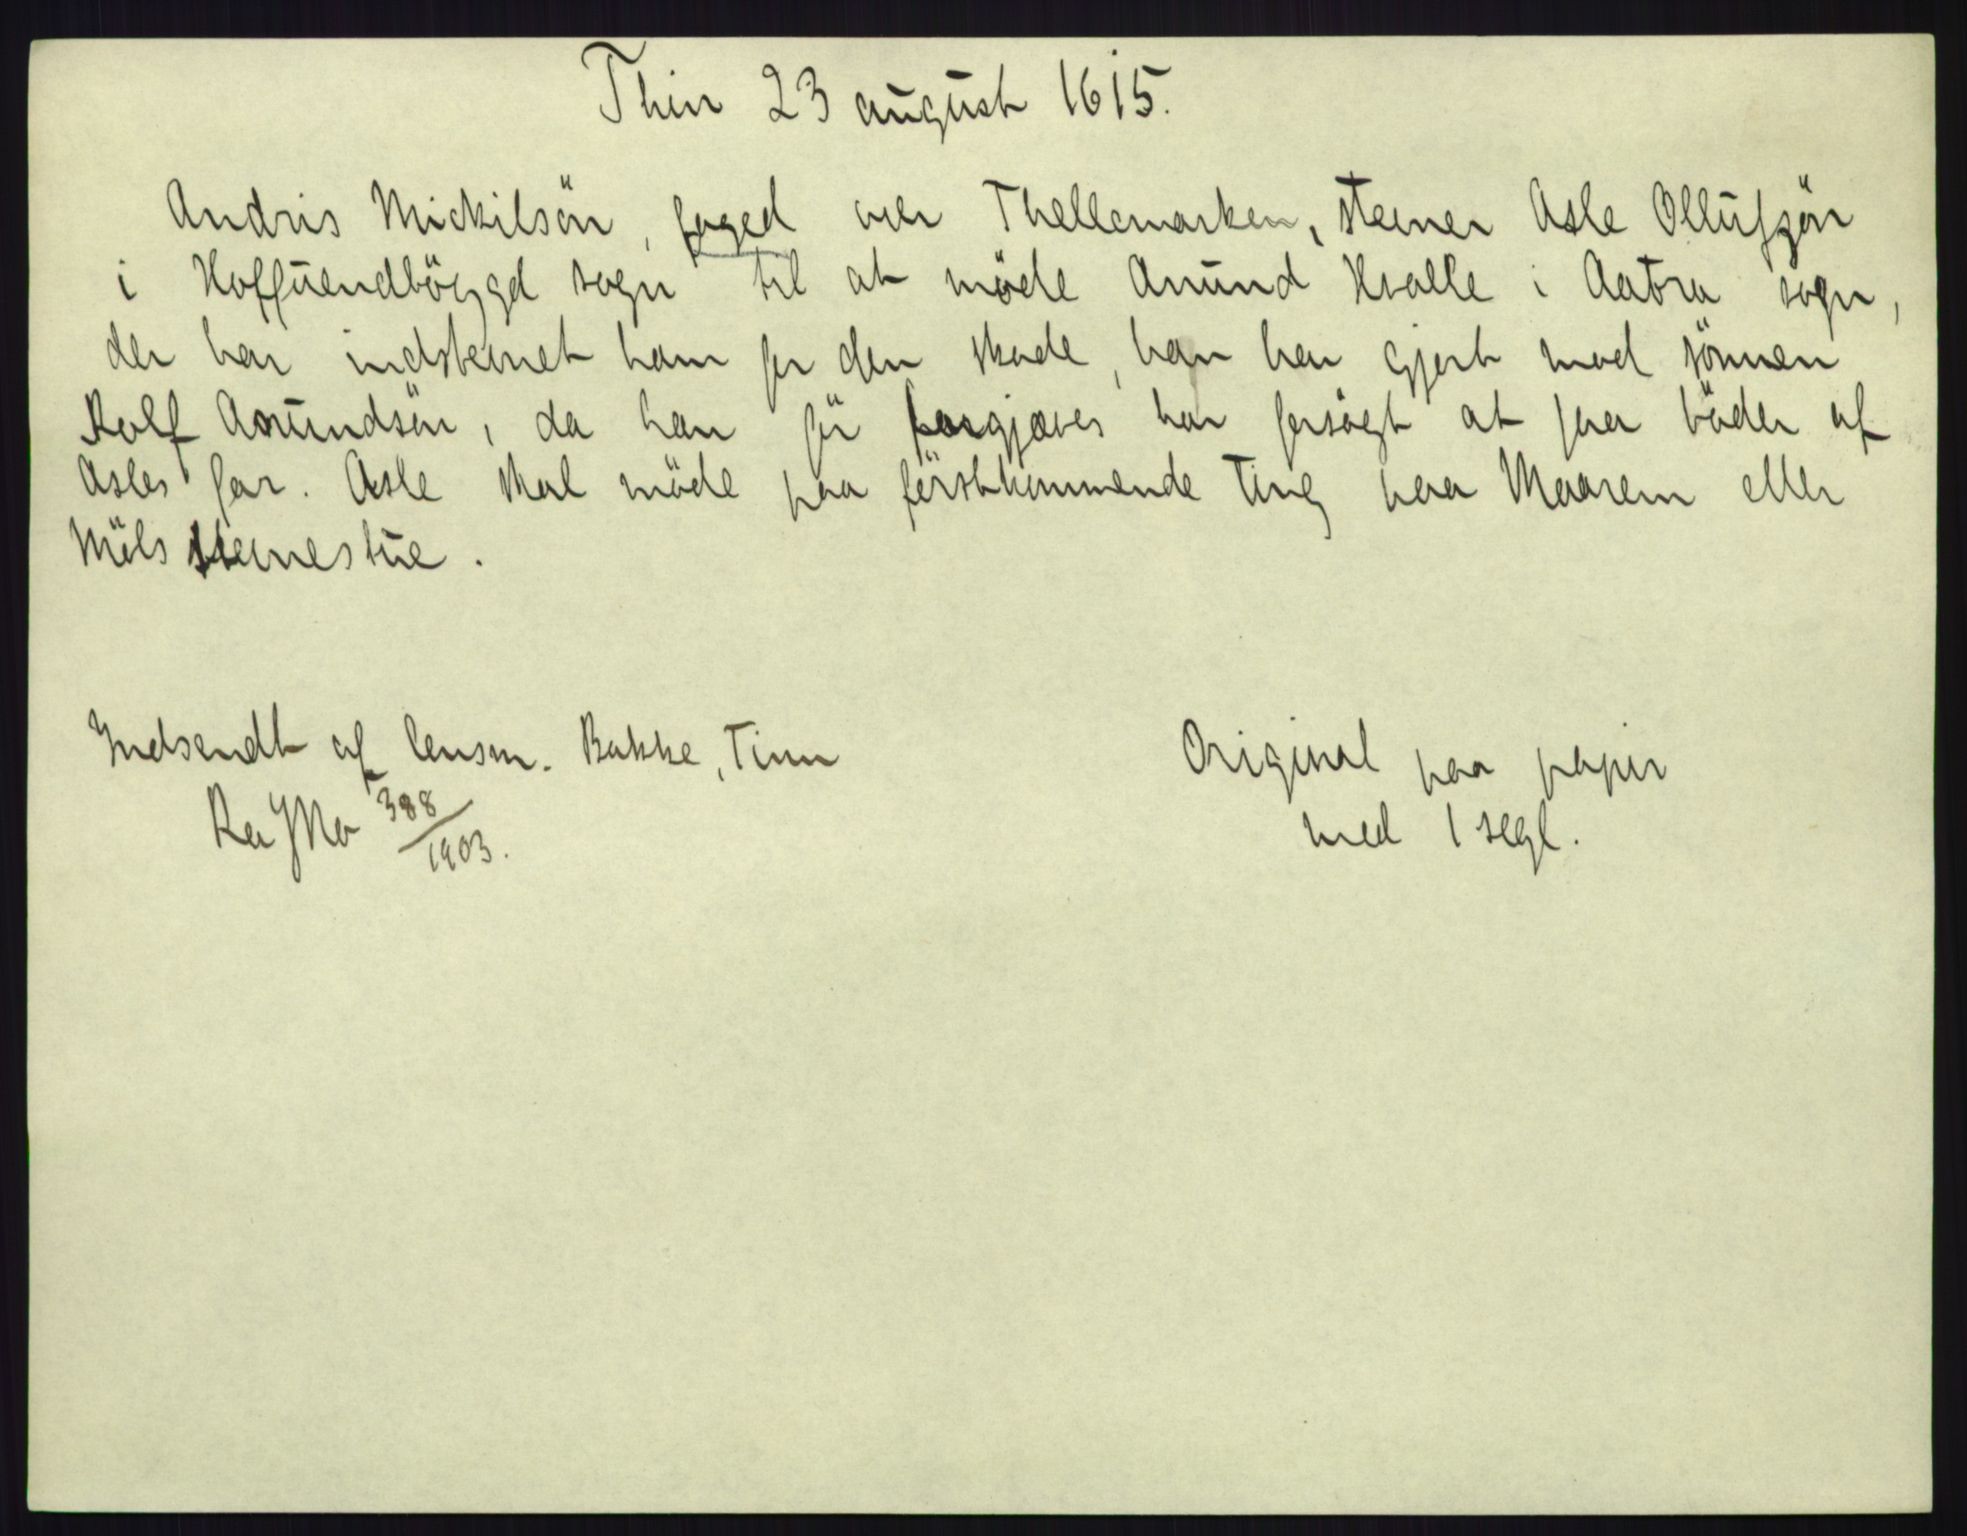 Thin 23 august 1615.
Andris Mickilsön, foged over Thellemarken, stevner Asle Ollufzön
i Hoffuendböigd sogn til at möde Anund Kvalle i Aatra sogn,
der har indstevnet ham for den skade, han har gjort mod sönnen
Rolf Anundsön, da han för forgjæves har forsögt at faa böder af
Asles far. Asle skal möde paa förstkommende ting paa Maarem eller
Möls stevnestue.
Indsendt af lensm. Bakke, Tinn
Ra JNo 388/1903.
Original paa papir
med 1 segl.